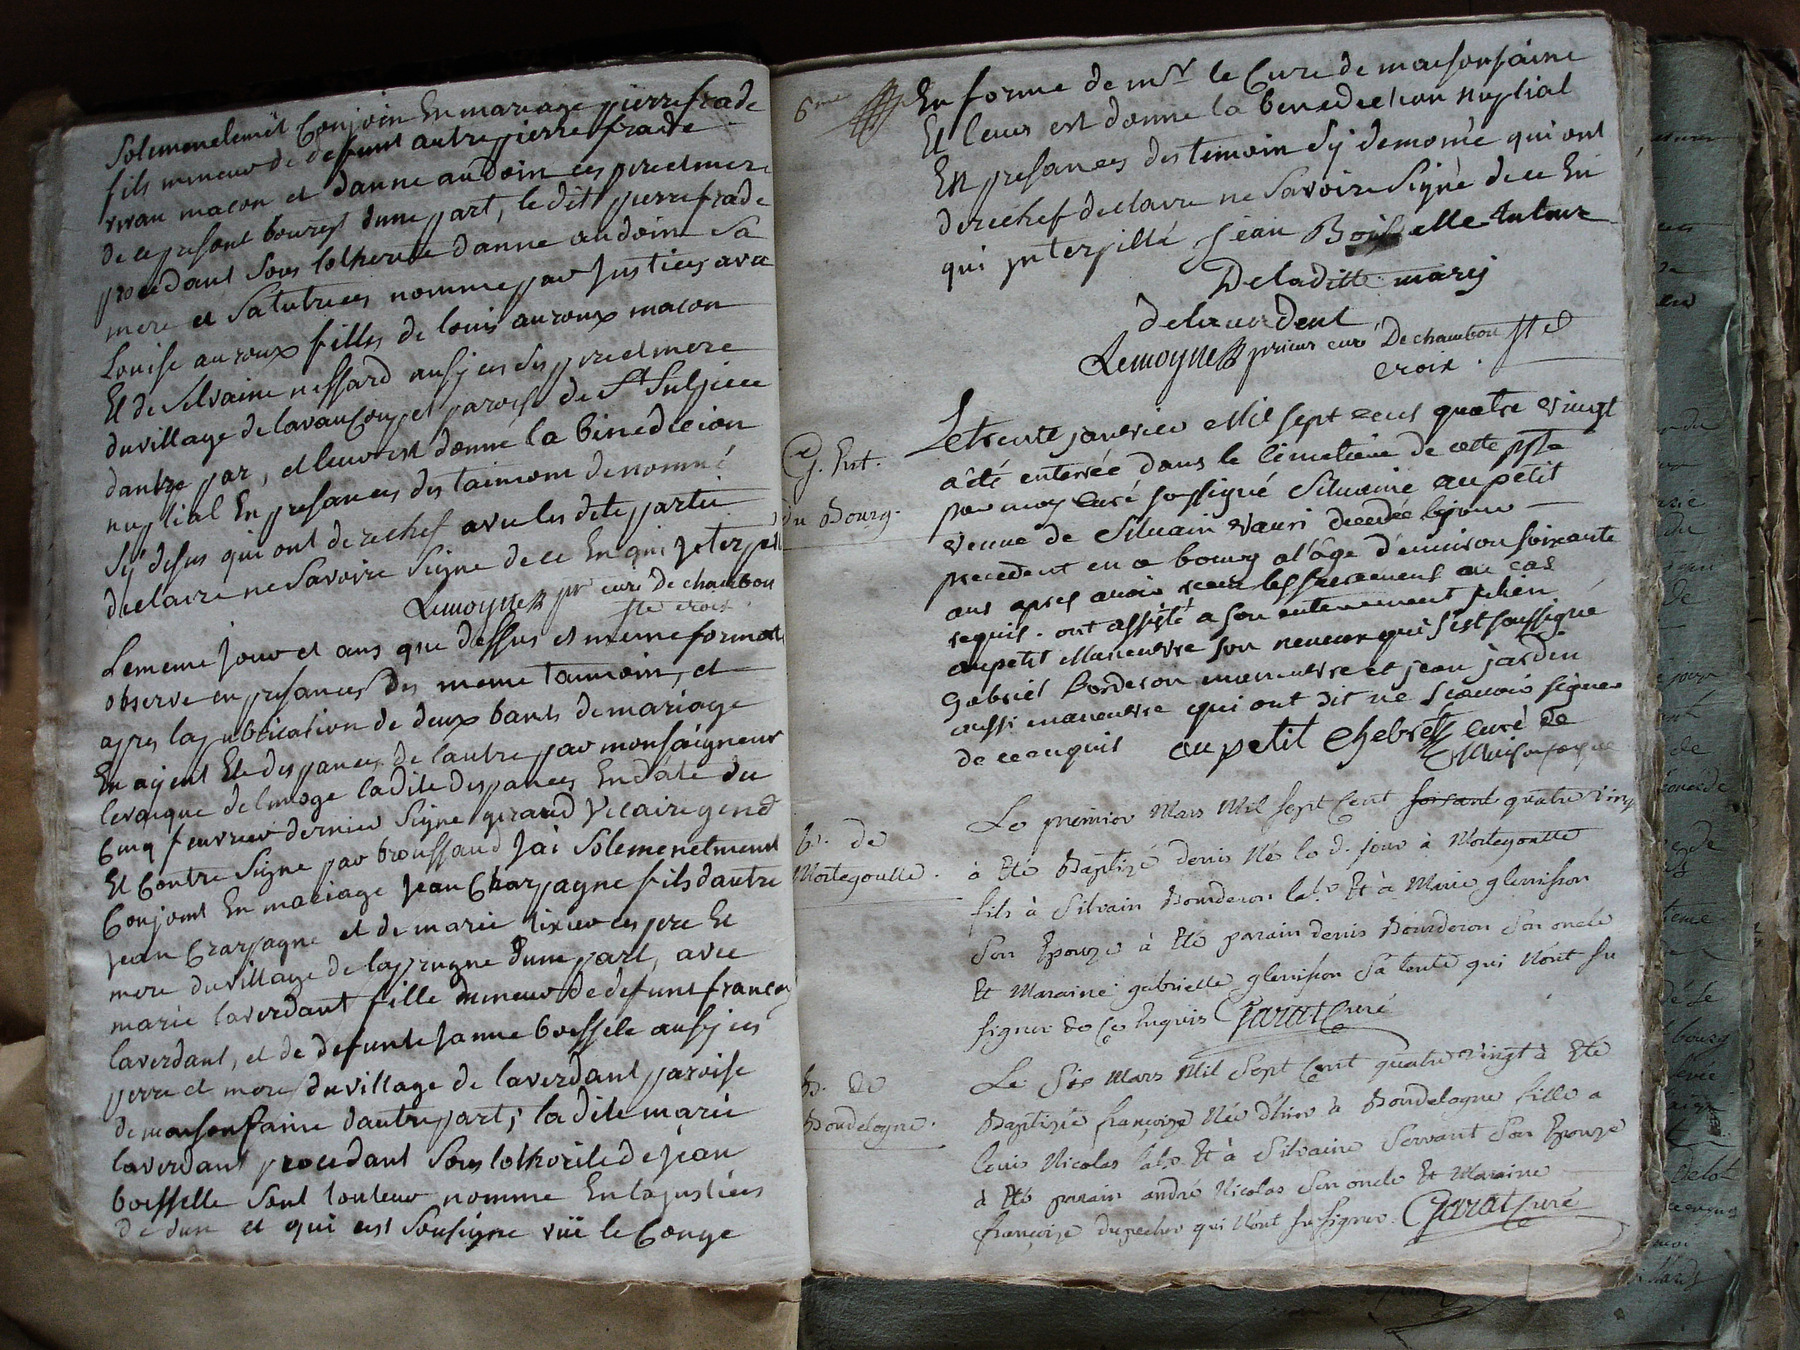 Solemnelemêt Conjoin En mariage pierre frade
fils mineur de defunt autre pierre frade
vivan macon et danne audoin ces pere et mere
de ce presant bourcg dune part, le dit pierre frade
procedant Sous lothorite danne audoin Sa
mere et Satutrices nomme par Justices avec
Louise auroux filles de louis auroux macon
Et de Silvaine nessard ausy ces dis pere et mere
du village de lavaucoupet paroise de St Sulpice
dautre par, et leur est donné la Benediction
nuptial En presances des taimoins denommé
Sÿ desus qui ont derechef avec les dite partie
declaire ne Savoire Signe de ce En qui Jnterpellé
Lemoyne pr curé De chambon
ste croix
Le meme Jour et ans que dessus et meme formal
observe en presances des meme taimoin, et
apres la publication de deux bants de mariage
En ayent Ete dispances de lautre par monsaigneur
levaique de limoge ladite dispances En date du
Cinq feuvrier dernier Signe giraud Vicaire gend
Et Contre Signe par broussaud Jai Solemenelment
Conjoint En mariage Jean Charpagne fils dautre
Jean Charpagne et de marie tixier ces pere Et
mere du village de laprugne dune part, avec
marie laverdant fille mineur de defunt francoy
laverdant, et de defunte Janne boessele ausy ces
perre et more du village de laverdant paroise
de maisonfaine dautre part; la dite marie
laverdant procedant Sous lothorite de jean
boesselle Sont touteur nomme En la justices
de dun et qui est Sousigne vüe le Conge
6me En forme de mr le Cure de maisonfaine
Et leurs est donne la benediction nuptial
En presances des temoin Sÿ denomé qui ont
derechef declaire ne Savoire Signé de ce En
qui ynterpillé jean Boisselle tuteur
De ladite marij
delaverdent
Lemoyne prieur curé De chambon Ste
croix.
G. Ent.
du Bourg.
Le trente janvier Mil sept cens quatre vingt
a été enterrée dans le Cimetiere de cette psse
par moy curé soussigné Silvaine aupetit
veuve de Silvain vauri decedée le jour
precedent en ce bourg a l'âge d'environ soixante
ans apres avoir receu les sacrements au cas
requis. ont assisté a son enterrement
aupetit Maneuvre son neveu qui s'est soussigné
Gabriel Borderon maneuvre et jean jardin
aussi maneuvre qui ont dit ne scavoir signer
de ce enquis aupetit Chebret curé de
Maisonfayne
b. de
Mortegoutte.
Le premier Mars Mil Sept Cent soixant quatre vingt
à Eté Baptizé denis Né le d. jour à Mortegoutte
fils à Silvain Bourderon labr Et à Marie glenisson
Son Epouze à Eté parain denis Bourderon Son oncle
Et Maraine gabrielle glenisson Sa tente qui N'ont su
signer de Ce Enquis Garat Curé
b. de
Boudelogne.
Le Six Mars Mil Sept Cent quatre vingt à Eté
Baptizée françoize Née d'hier à Boudelogne fille a
louis Nicolas labr. Et à Silvaine Servant Son Epouze
à Eté parain andré Nicolas Son oncle Et Maraine
françoize dupecher qui N'ont su signer. Garat Curé